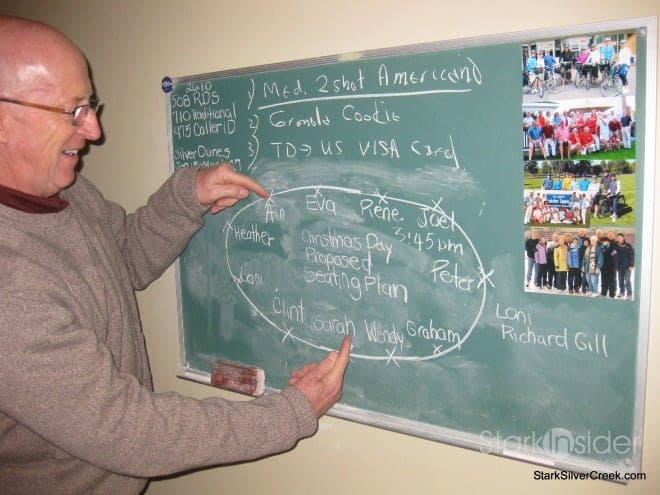 2610
508 RDS
7110 Traditional
475 Caller ID
Silver Dunes
1) Med. 2 shot Americano
2) Gronola Cookie
3) TD → US VISA Card
Ann Eva Rene Joel
Heather
Christmas Day
3:45pm
Proposed
Seating Plan
Peter
Loni
Clint Sarah Wendy Graham
Loni
Richard Gill
Stark Insider
StarkSilverCreek.com